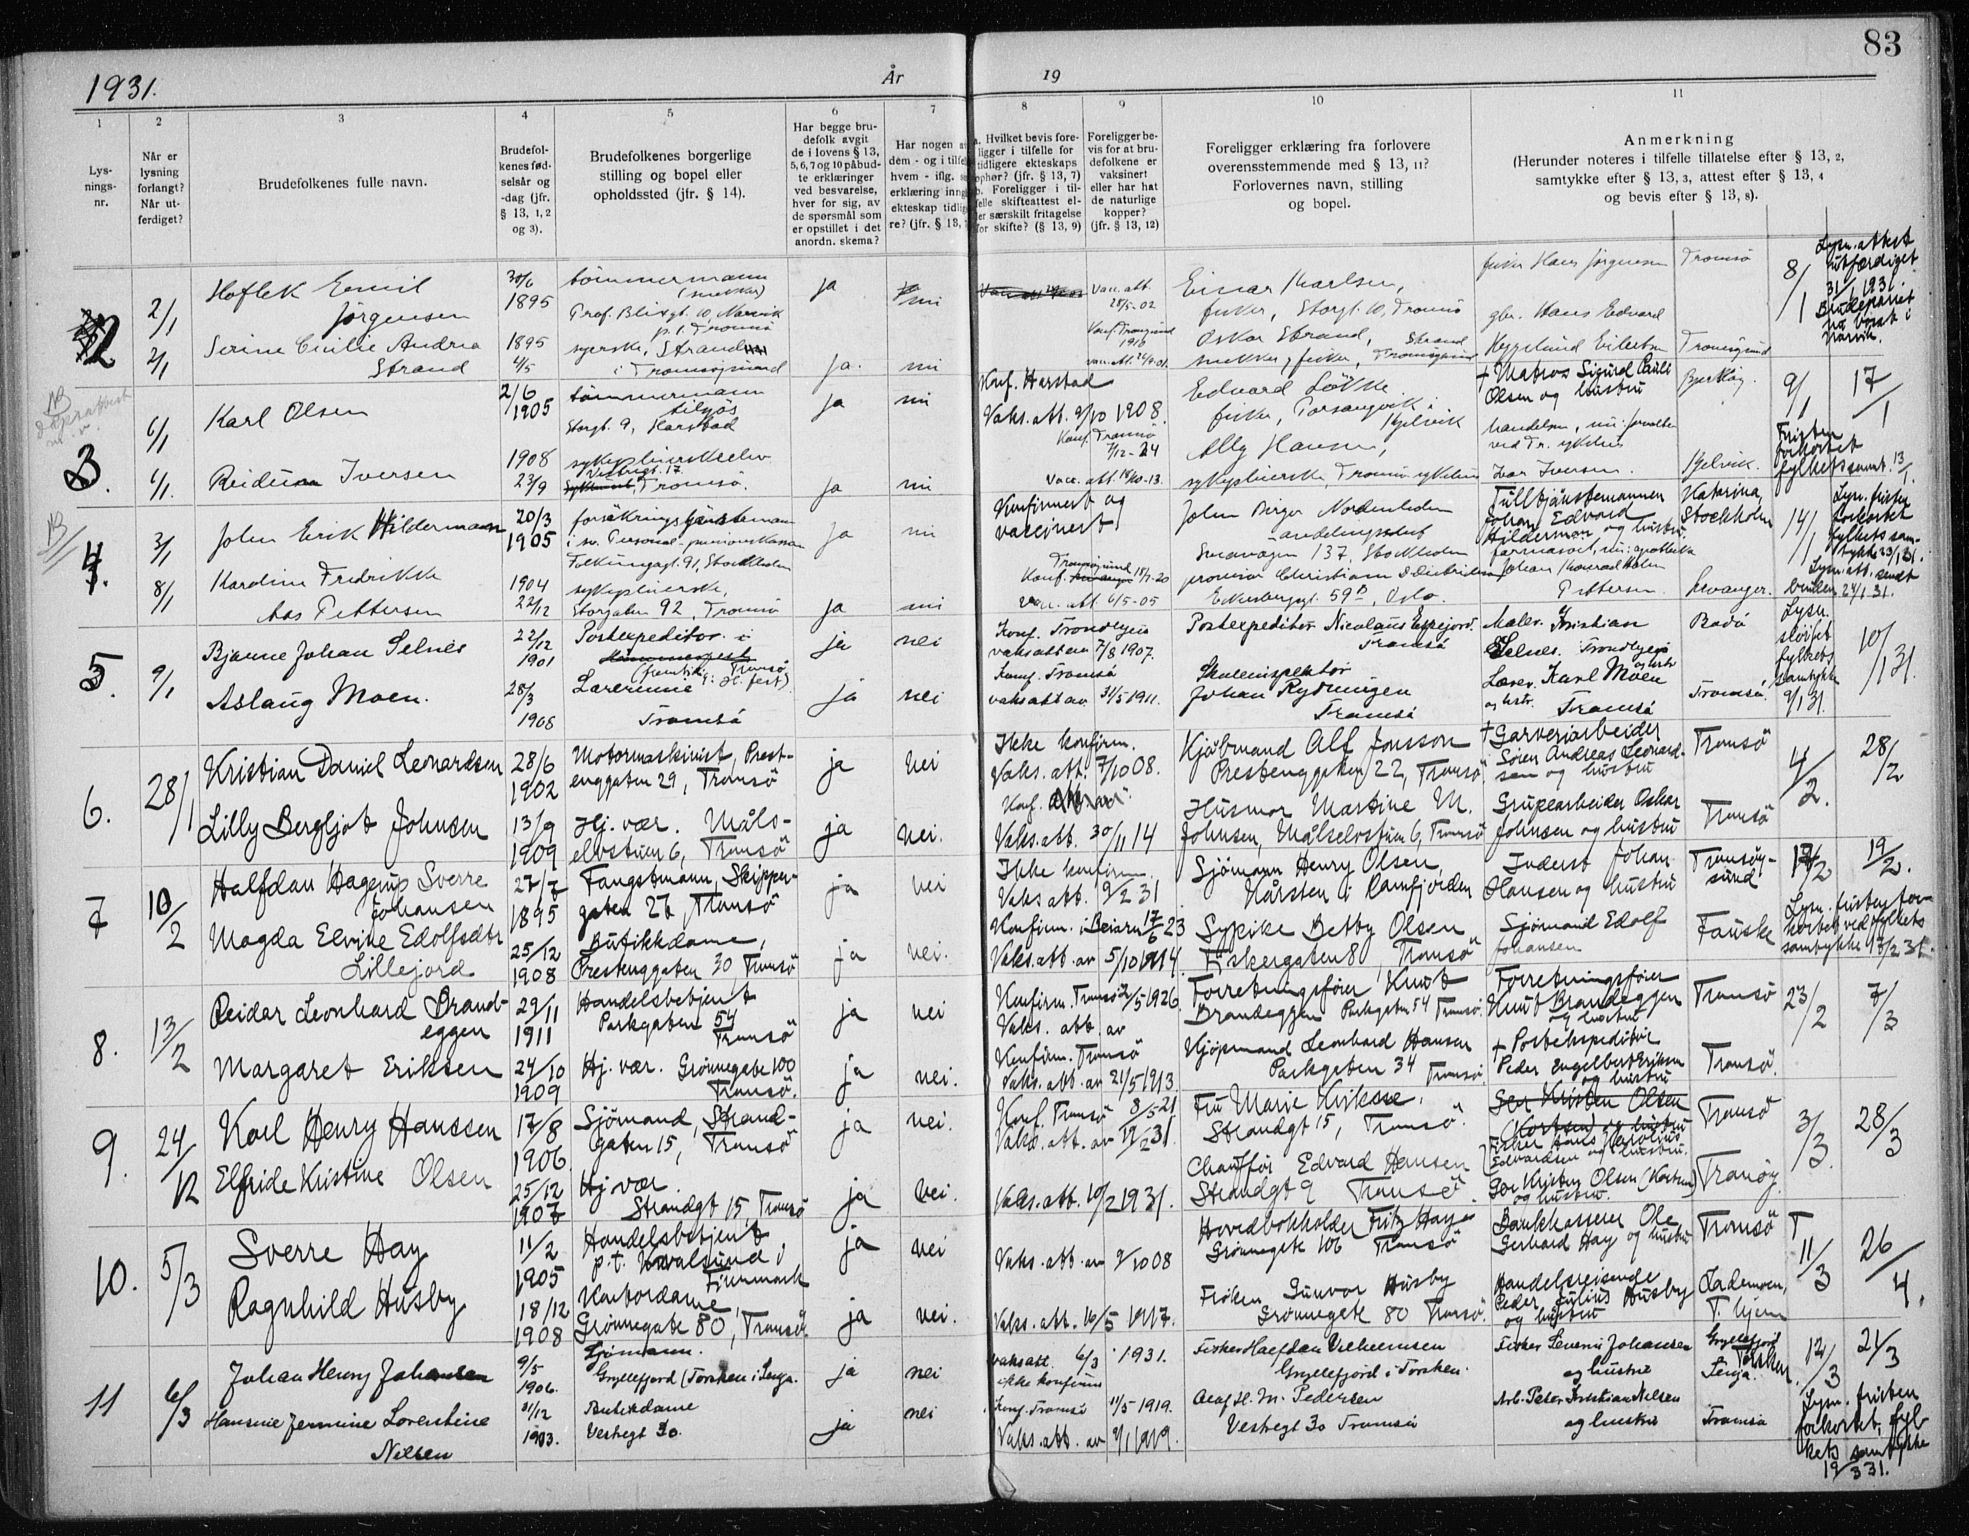 83
1931.
År
19
1
2
3
4
5
6
7
8
9
10
11
Lys-
nings-
nr.
Når er
lysning
forlangt?
Når ut-
ferdiget?
Brudefolkenes fulle navn.
Brudefol-
kenes fød-
selsår og
-dag (jfr.
§ 13, 1, 2
og 3).
Brudefolkenes borgerlige
stilling og bopel eller
opholdssted (jfr. § 14).
Har begge bru-
defolk avgit
de i lovens § 13,
5, 6, 7 og 10 påbud-
te erklæringer
ved besvarelse,
hver for sig, av
de spørsmål som
er opstillet i det
anordn. skema?
Har nogen a
dem - og i tilfe
hvem - iflg. s
erklæring inng
ekteskap tidlig
re? (jfr. § 13,
a. Hvilket bevis fore-
ligger i tilfelle for
tidligere ekteskaps
ophør? (jfr. § 13, 7)
b. Foreligger i til-
felle skifteattest el-
er særskilt fritagelse
for skifte? (§ 13, 9)
Foreligger be-
vis for at bru-
defolkene er
vaksinert
eller har hat
de naturlige
kopper?
(jfr. § 13, 12)
Foreligger erklæring fra forlovere
overensstemmende med § 13, 11?
Forlovernes navn, stilling
og bopel.
Anmerkning
(Herunder noteres i tilfelle tillatelse efter § 13, 2,
samtykke efter § 13, 3, attest efter § 13, 4
og bevis efter § 13, 8).
2
2/1
Hoflek Emil
Jörgensen
30/6
1895
tömmermann
(snekker)
Prof. Blixgt. 10, Narvik
p. t. Tromsö
ja
nei
vacc. att.
28/5-02
Einar Karlsen,
fisker, Storgt. 10, Tromsö
fisker Hans Jörgensen Tromsö
8/1
Lysn. attest
utfærdiget
31/1 1931.
Brudeparet
nu bosat i
Narvik.
2/1
Serine Cicilie Andrea
Strand
1895
4/5
syerske, Strand
i Tromsøysund
ja.
nei
Konf. Tromsösund
1910
Oskar Strand, Strand
snekker, fisker, Tromsösund
gbr. Hans Edvard
Heggelund Eilertsen Tromsösund
3.
6/1
Karl Olsen
2/6
1905
tömmermann
tilhos
Storgt. 9, Harstad
ja
nei
Konf. Harstad
Vaks. att. 9/10 1908.
Edvard Lökke
fisker, Porsangvik i
Kjelvik
† Matros Sigurd Pauli
Olsen og hustru
Bjarköy.
9/1
17/1
6/1.
Reidun Iversen
1908
23/9
sykepleierskeelev
Vestregt. 17
Tromsö.
ja
nei
Konf. Tromsö
7/12-24
vacc. att. 18/10-13.
Ally Hansen,
sykepleierske, Tromsö sykehus
handelsm, nu: forvalter
ved Tr. sykehus
Ivar Iversen. Kjelvik.
Fristen
forkortet
fylketssamt. 13/1.
NB
4.
3/1
John Erik Hilderman
20/3
1905
försäkringstjänsteman
i sv. Personal-pensionskassan
Folkungagt. 91, Stockholm
ja
nei
Konfirmert og
vaccinert
John Birger Nordenheden
Sveavägen 137, Stockholm
Tulltjänstemannen
Johan Edvard
Hilderman og hustru
Katarina,
Stockholm
14/1
Lysn. fristen
forkortet
fylkets sam-
tykke 23/1 31.
8/1
Karoline Fredrikke
Aas Pettersen
1904
22/12
sykepleierske,
Storgaten 92, Tromsö
ja
nei
Tromsösund
Konf. 18/7-20
vacc. att. 6/5-05
provisor Christian S Diedrichsen
Eckersbergsgt. 59B, Oslo.
farmasøit, nu: apotheker
Johan Konrad Holm
Pettersen Levanger.
Lysn. att. sendt
bruden 24/1 31.
5.
9/1
Bjarne Johan Selnes
22/12
1901
Postexpeditor i
Hammerfest
(fremtidig: H.fest)
Tromsö
ja
nei
Konf. Trondhjem
vaksatt av 7/8 1907.
Postexpeditor Nicolaus Espejord.
Tromsö
Maler Kristian
Selnes. Trondhjem
og hstr.
Bodö
Lysn.
sløifet
fylkets
samtykke
9/1 31.
10/1 31.
Aslaug Moen.
28/3
1908
Lærerinne
Tromsö
ja
nei
Konf. Tromsö
vaksatt av 31/5 1911.
Skoleinspektör
Johan Rydningen
Tromsö
Lærer Karl Moen
og hstr. Tromsö
Tromsö.
6.
28/1
Kristian Daniel Leonardsen
28/6
1902
Motormaskinist, Prest-
enggaten 29, Tromsö
ja
nei
Ikke konfirm.
Vaks. att. 7/10 08.
Kjöbmand Alf Jonsson
Prestenggaten 22, Tromsö
† Garveriarbeider
Sören Andreas Leonard-
sen og hustru
Tromsö
4/2.
28/2
Lilly Bergljot Johnsen
13/9
1909
Hj. vær. Måls-
elvstuen 6, Tromsö
ja
nei.
Vaks. att. 30/11 14
Husmor Martine M.
Johnsen, Målselvstuen 6, Tromsö
Grubearbeider Oskar
Johnsen og hustru
Tromsö
7
10/2
Halfdan Hagerup Sverre
Johansen
27/7
1895
Fangstmann, Skipper-
gaten 27, Tromsö
ja
nei
Ikke konfirm.
Vaks att. 9/2 31
Sjömann Henry Olsen,
Kårsten i Ramfjorden
Inderst Johan
Hansen og hustru
Tromsöy-
sund
17/2
19/2.
Magda Elvine Edolfsdtr
Lillejord
25/12
1908
Butikkdame,
Prestenggaten 30 Tromsö
ja
nei.
Konfirm. i Beiarn 17/6 23
Vaks. att. av 5/10 1914.
Sypike Betty Olsen
Fiskergaten 8, Tromsö
Sjömand Edolf
Johansen
Fauske
Lysn. fristen for-
kortet ved fylkets
samtykke 17/2 31.
8.
13/2
Reidar Leonhard Brand-
eggen
29/11
1911
Handelsbetjent
Parkgaten 54
Tromsö
ja
nei
Konfirm. Tromsö 2/5 1926
Vaks. att. av
Forretningsförer Knut
Brandeggen Parkgaten 54 Tromsö.
Forretningsförer
Knut Brandeggen
og hustru
Tromsö
23/2
7/3
Margaret Eriksen
24/10
1909
Hj. vær. Grönnegate 100
Tromsö.
ja
nei.
Konfirm. Tromsö
Vaks. att. av 21/5 1913.
Kjöpmand Leonhard Hansen
Parkgaten 34 Tromsö.
† Postekspeditör
Peder Engelbert Eriksen
og hustru
Tromsö.
9.
24/12
Karl Henry Hanssen
17/8
1906
Sjömand, Strand-
gaten 15, Tromsö
ja
nei.
Konf. Tromsö 8/5 21
Vaks. att. av 19/2 31.
Fru Marie Kviksne.
Strandgt 15, Tromsö.
Ger Kristen Olsen
(Kortsen) og hustru
Fisker Hans Harolius
Edvardsen og hustru.
Tromsö
3/3.
28/3
Elfride Kristine Olsen
25/12
1907
Hj. vær
Strandgt 15 Tromsö
ja
nei.
Vaks. att. 10/2 1931.
Chauffør Edvard Hansen
Strandgt 9 Tromsö.
Ger Kristen Olsen (Kortsen)
og hustru.
Tranöy.
10.
5/3
Sverre Hay
11/2
1905
Handelsbetjent,
p.t. Kvalsund i
Finnmark
ja
nei
Vaks. att. av 9/10 08
Hovedbokholder Fritz Hay
Grönnegate 106 Tromsö
Bankkasserer Ole
Gerhard Hay og hustru
Tromsö
T
11/3
26/4.
Ragnhild Husby
18/12
1908
Kontordame,
Grönnegate 80, Tromsö
ja
nei.
Vaks. att. 16/5 1917.
Fröken Gunvor Husby
Grönnegate 80 Tromsö.
Handelsreisende
Peder Julius Husby
og hustru
Lademoen,
T. hjem
11
6/3
Johan Henry Johansen
9/5
1906.
Sjömann.
Gryllefjord (Torsken i Senja.
ja
nei
vaksatt. 6/3 1931.
ikke konfirm
Fisker Halfdan Vilhelmsen
Gryllefjord i Torsken.
Fisker Severin Johansen
og hustru
Gryllefjord
Torsken,
Senja.
12/3
21/3
Hansine Jermine Lorentine
Nilsen
31/12
1903.
Butikdame
Vestregt 30.
ja
nei
Konf. Tromsö 11/5 1919.
Vaks. att. av 9/1 1909.
Olaf H. M. Pedersen
Vestregt 30 Tromsö
Arb. Peter Kristian Nilsen
og hustru
Tromsö
Lysn. fristen
forkortet, fyl-
kets samtykke
19/3 31.